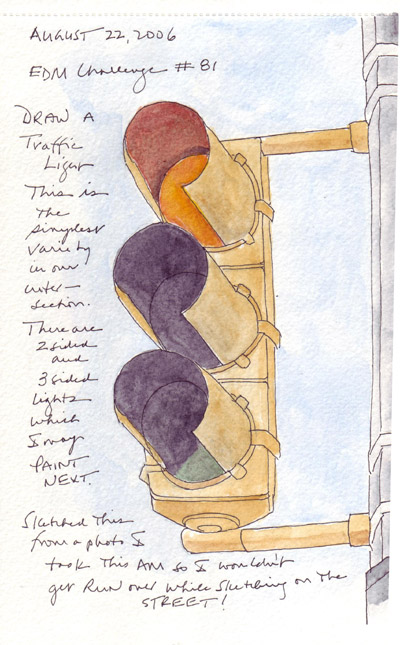 AUGUST 22, 2006
EDM Challenge #81
DRAW A
Traffic
Light
This is
the
simplest
variety
in our
inter-
section.
There are
2 sided
and
3 sided
lights
which
I may
PAINT
NEXT.
Sketched This
from a photo I
took This AM so I wouldn't
get Run over while sketching on The
STREET!